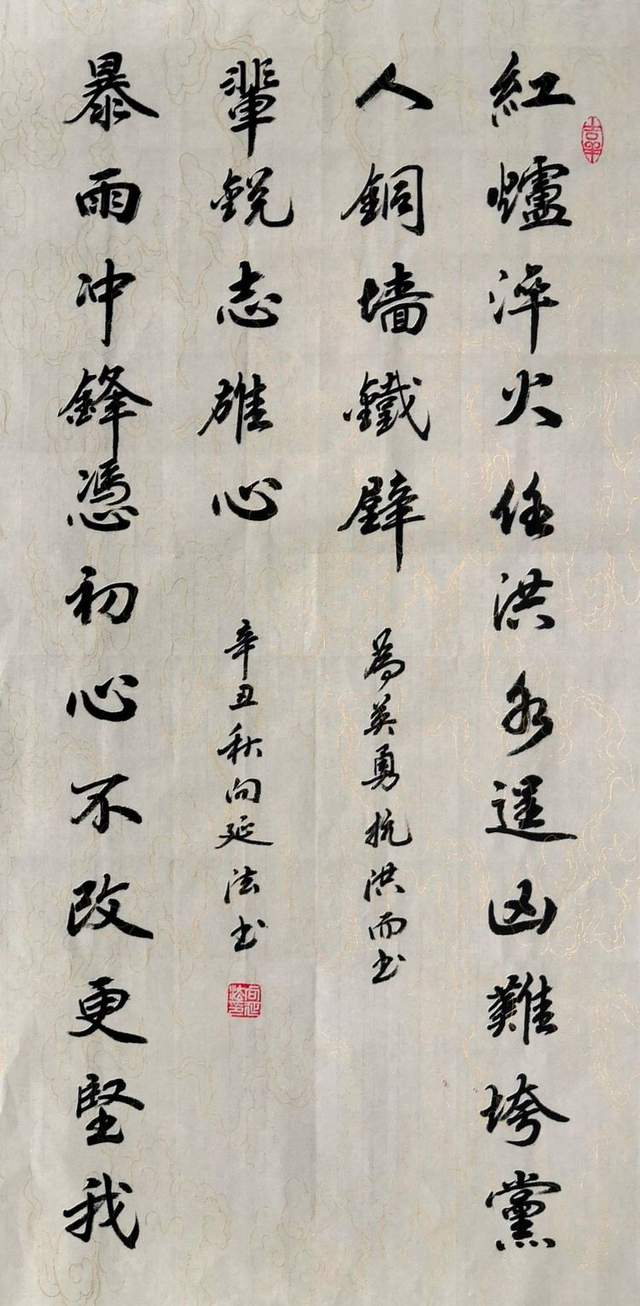 紅爐淬火任洪水逞凶難垮黨
人銅墻鐵壁
為英勇抗洪而书
暴雨冲鋒憑初心不改更堅我
輩銳志雄心
辛丑秋向延法书